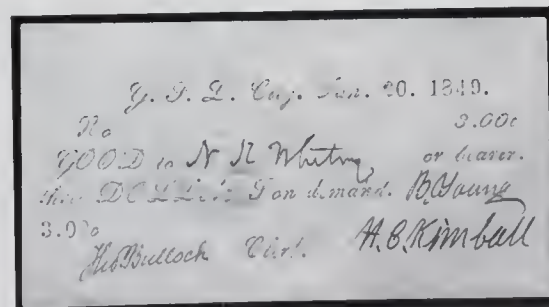 G. S. L. City. Jan. 20. 1849.
No 3.00c
GOOD to N K Whitney or bearer.
on demand. B. Young
3.00
Tho Bullock Clerk. H. C. Kimball